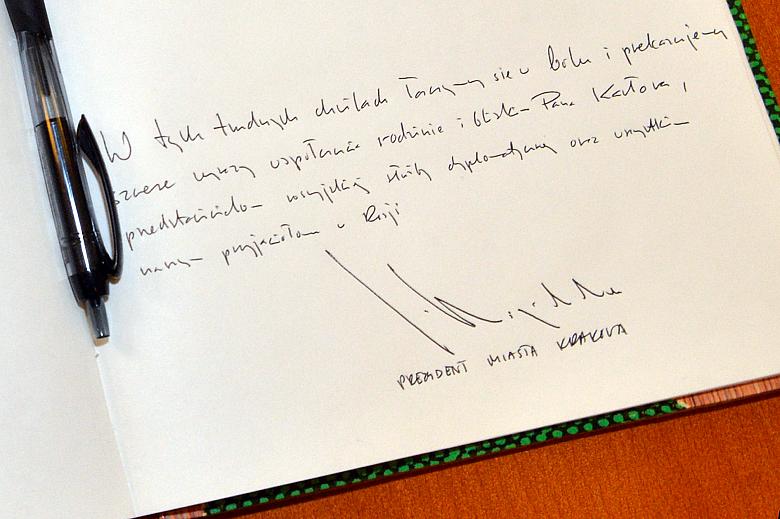 W tych trudnych chwilach łączymy się w bólu i przekazujemy
szczere wyrazy współczucia rodzinie i bliskim Pana Karłowa,
przedstawicielom rosyjskiej służby dyplomatycznej oraz wszystkim
naszym przyjaciołom w Rosji
PREZYDENT MIASTA KRAKOWA